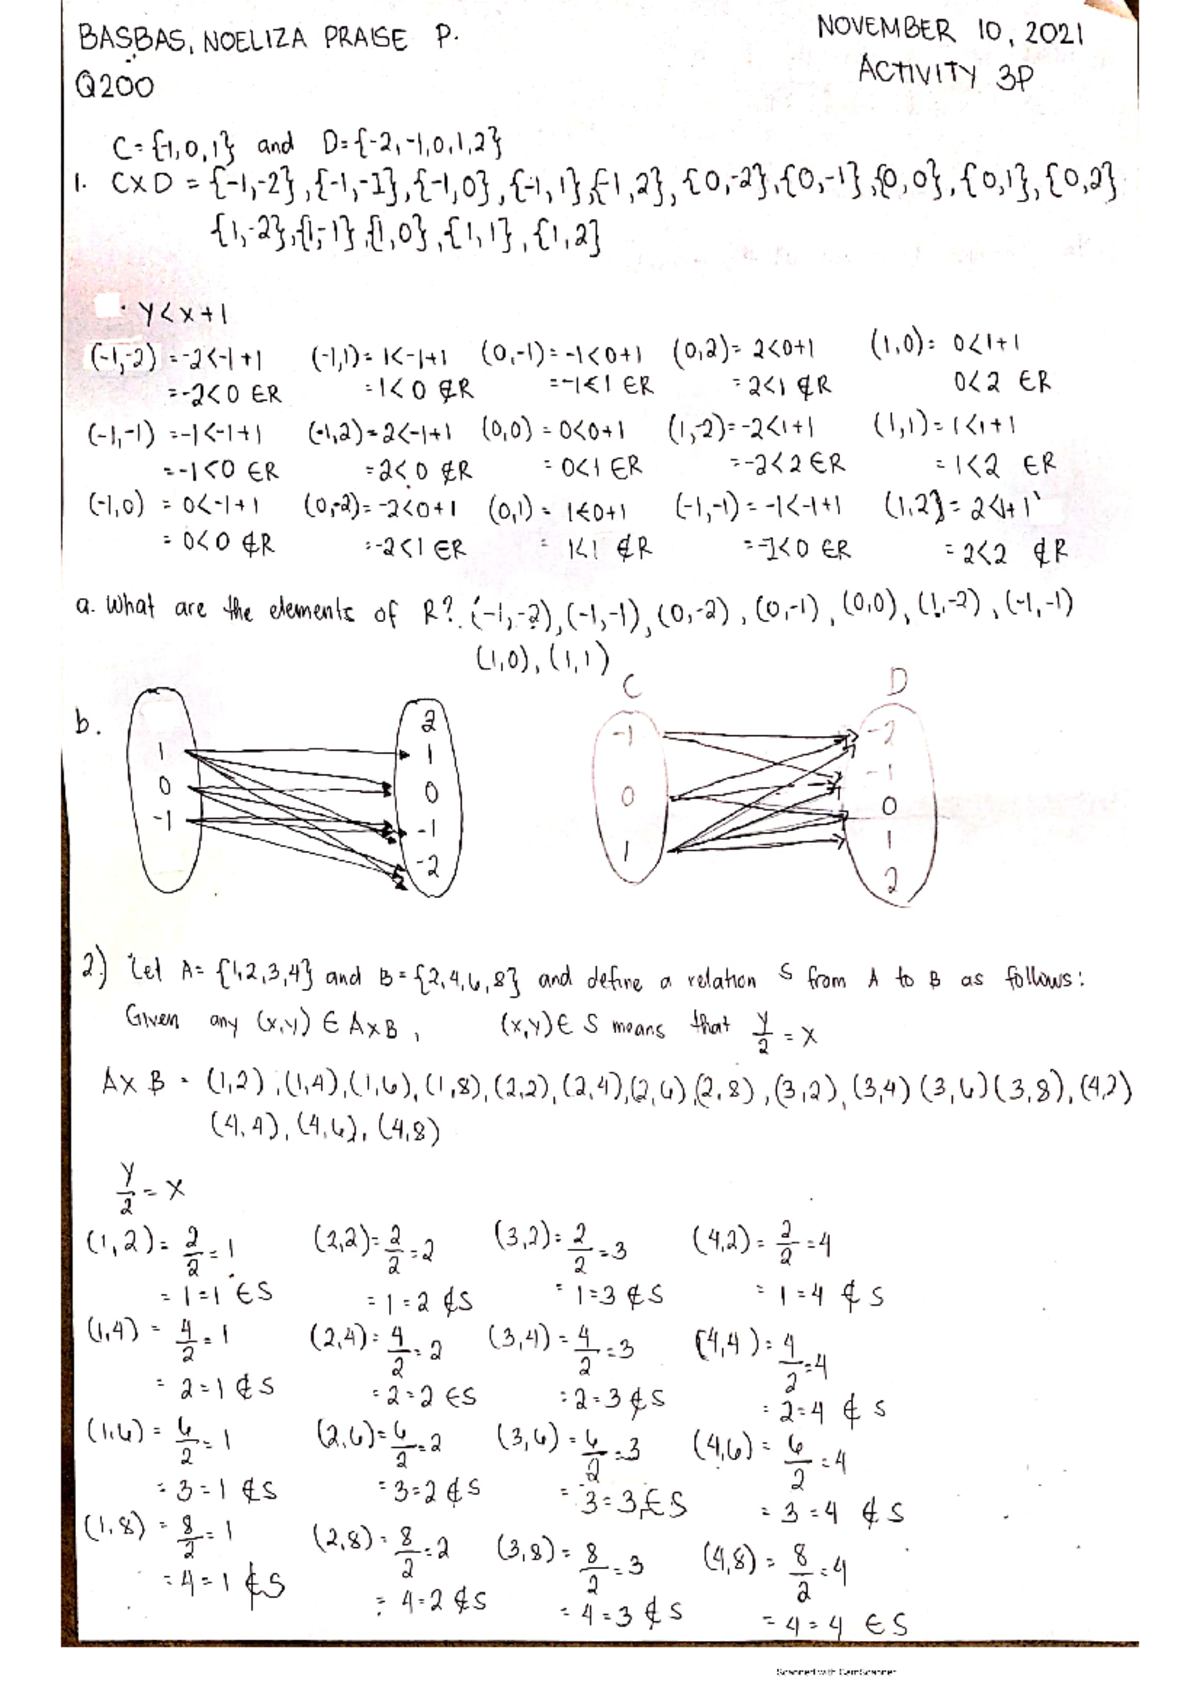 BASBAS, NOELIZA PRAISE P.
NOVEMBER 10, 2021
Q200
ACTIVITY 3P
C={-1,0,1} and D={-2,-1,0,1,2}
1. CXD = {-1,-2},{-1,-1},{-1,0},{-1,1},{-1,2},{0,-2},{0,-1},{0,0},{0,1},{0,2}
{1,-2},{1,-1},{1,0},{1,1},{1,2}
y<x+1
(-1,-2) =-2<-1+1 (-1,1)= 1<-1+1 (0,-1)=-1<0+1 (0,2)= 2<0+1 (1,0)= 0<1+1
=-2<0 ∈R =1<0 ∉R =-1<1 ∈R =2<1 ∉R 0<2 ∈R
(-1,-1) =-1<-1+1 (-1,2)=2<-1+1 (0,0) = 0<0+1 (1,-2)=-2<1+1 (1,1)= 1<1+1
=-1<0 ∈R =2<0 ∉R = 0<1 ∈R =-2<2 ∈R = 1<2 ∈R
(-1,0) = 0<-1+1 (0,-2)=-2<0+1 (0,1) = 1<0+1 (-1,-1)=-1<-1+1 (1,2}= 2<1+1
= 0<0 ∉R =-2<1 ∈R = 1<1 ∉R =-1<0 ∈R = 2<2 ∉R
a. What are the elements of R? (-1,-2),(-1,-1),(0,-2),(0,-1),(0,0),(1,-2),(-1,-1)
(1,0),(1,1)
b.
1
0
-1
2
1
0
-1
-2
C
-1
0
1
D
-2
-1
0
1
2
2.) Let A= {1,2,3,4} and B={2,4,6,8} and define a relation S from A to B as follows:
Given any (x,y) ∈ AxB, (x,y)∈ S means that y/2 = x
A x B = (1,2),(1,4),(1,6),(1,8),(2,2),(2,4),(2,6),(2,8),(3,2),(3,4)(3,6)(3,8),(4,2)
(4,4),(4,6),(4,8)
y/2 = x
(1,2)= 2/2=1 (2,2)=2/2=2 (3,2)=2/2=3 (4,2)=2/2=4
= 1=1 ∈S = 1=2 ∉S = 1=3 ∉S = 1=4 ∉ S
(1,4) = 4/2=1 (2,4)=4/2=2 (3,4)=4/2=3 (4,4)=4/2=4
= 2=1 ∉S =2=2 ∈S =2=3 ∉S = 2=4 ∉ S
(1,6)= 6/2=1 (2,6)=6/2=2 (3,6)=6/2=3 (4,6)=6/2=4
= 3=1 ∉S =3=2 ∉S = 3=3 ∈S = 3=4 ∉ S
(1,8) = 8/2=1 (2,8)=8/2=2 (3,8)=8/2=3 (4,8)=8/2=4
=4=1 ∉S = 4=2 ∉S = 4=3 ∉S = 4=4 ∈S
Scanned with CamScanner